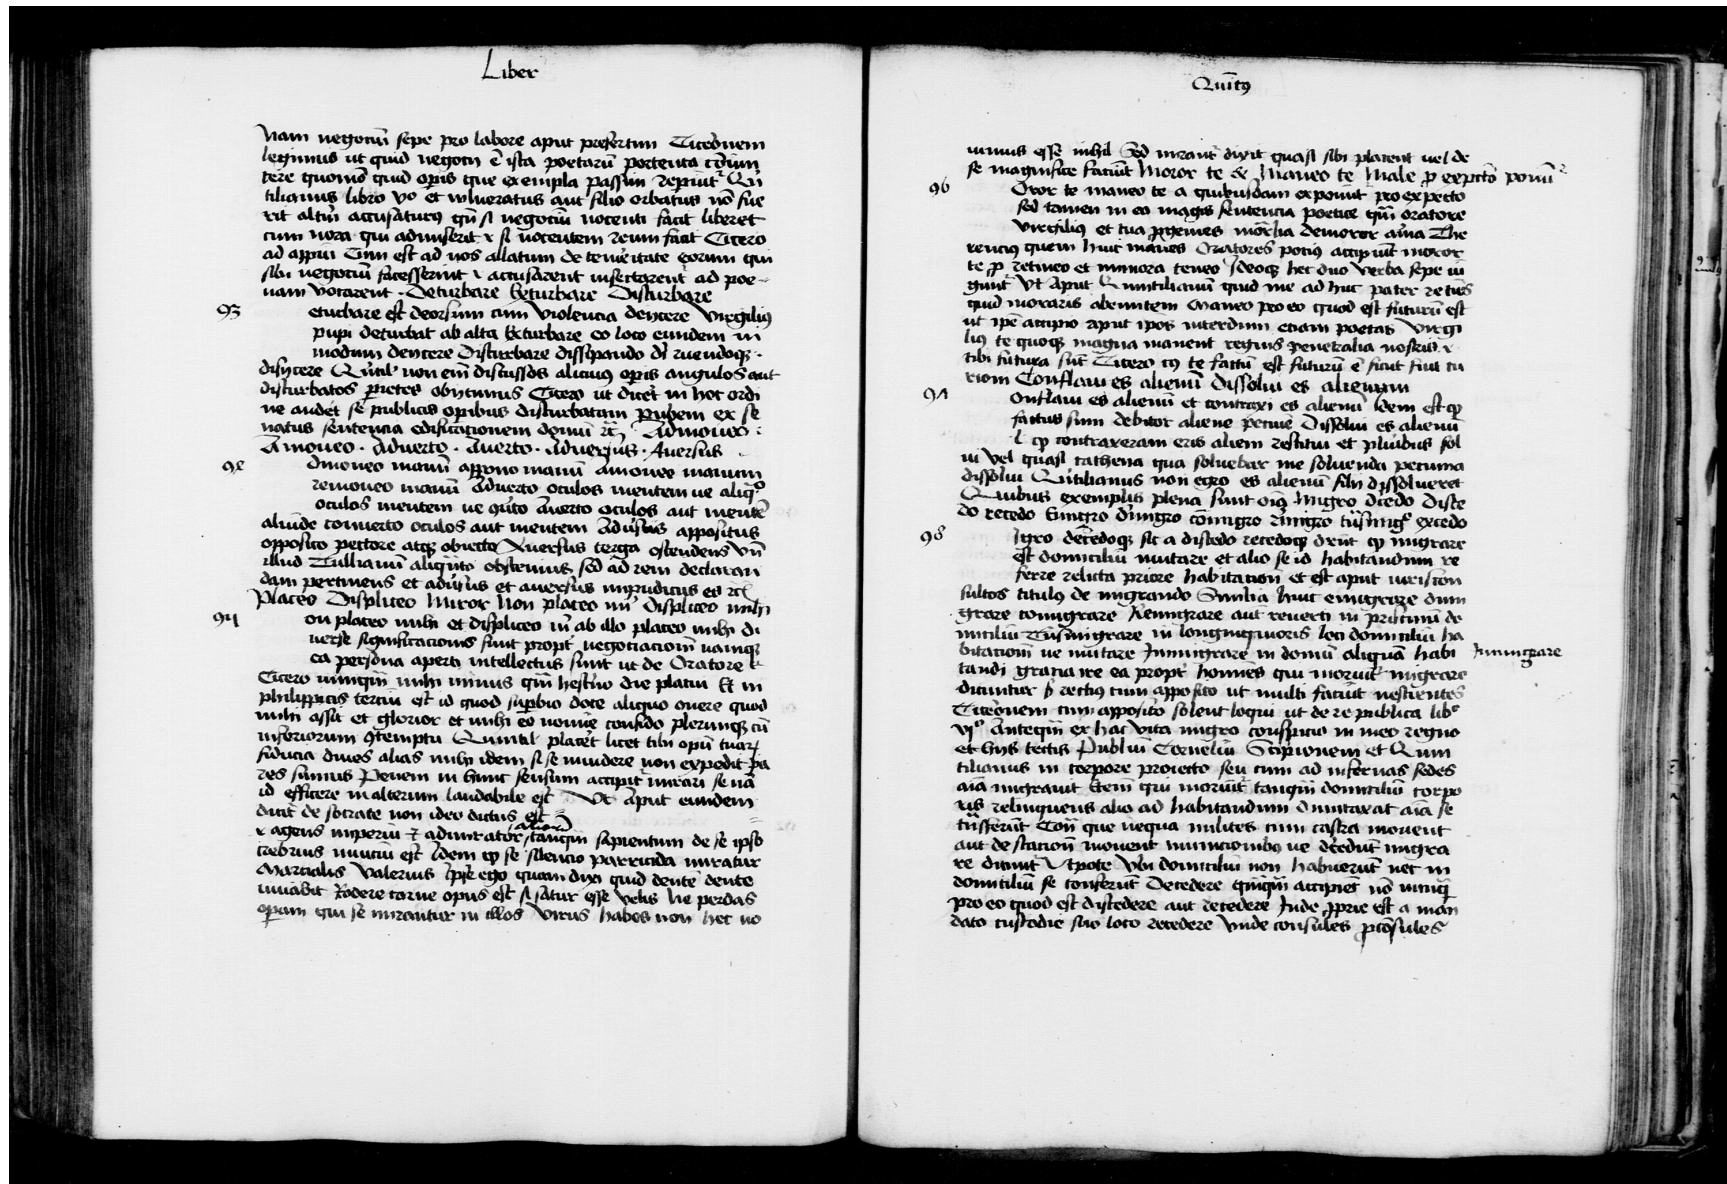 Liber
Nam negociũ sepe pro labore aput presertim Ciceronem
legimus ut quid negocij ẽ ista poetarũ portenta cõuin
cere quomõ quid opis que exempla passim
tilianus libro vo et vulneratus aut filio orbatus nõ fue
rit altm̃ accusaturus qm̃ si negociũ nocenti facit liberet
cum noxa qui admiserit ⁊ si nocentem reum facit Cicero
ad appiũ Cum est ad nos allatum de temeritate eorum qui
sibi negociũ facesserint ⁊ accusarent insectarent ad poe-
nam vocarent · Deturbare Exturbare Disturbare
93 eturbare est deorsum cum violencia deijcere Virgilius
pupi deturbat ab alta Exturbare eo loco eundem in
modum deijcere Disturbare dissipando dr̃ ruendoque ·
disijcere Quintil non eim̃ discussos alicuius opis angulos aut
disturbatos parietes obijcimus Cicero ut dicer̃ in hoc ordi
ne audet se publicis operibus disturbaturum Publicem ex se
natus sentencia edificacionem domũ Admoueo :
Amoueo · Aduerto · Auerto · Aduersus · Auersus
dmoueo manũ appono manũ Amoueo manum
remoueo manũ Aduerto oculos mentem ue aliquo
oculos mentem ue Auerto oculos aut mentẽ
aliunde conuerto oculos aut mentem Aduersus appositus
opposito pectore atque obiecto Auersus terga ostendens
illud Tullianũ aliquto obscenius sed ad rem declaran
dam pertinens et aduersus et auersus impudicus es
Placeo Displiceo Miror Non placeo m̃ Displiceo mihi
94 on placeo mihi et displiceo m̃ ab illo placeo mihi di
uerse significacionis sunt propt̃ negociacionem namque
ea persona aperti intellectus sunt ut de Oratore
Cicero nunquam mihi minus qm̃ hesterno die placui Et in
philippicis tercium est id quod superbio dote aliquo onere quod
mihi assit et glorior et mihi eo nomine confido plerunque cũ
inferiorum contemptu Quintil placet licet tibi opũ tuarum
fiducia diues alias mihi idem si se inuidere non expedit pa
res sumus Penem in hunc sensum accipit̃ mirari se nã
id efficere in alterum laudabile est Ut aput eundem
ducit de socrate non ideo dictus est
⁊ agens imperiũ ⁊ admirator aliorũ tanquam sapientum de se ipso
crebrius nuncium est Idem quod se silencio parricida miratur
Marcialis Valerius Ipse ego quam dixi quid dentem dente
iuuabit Rodere carne opus est si satur esse velis Ne perdas
operam qui se mirantur in illos Virus habes non hec no
Quĩtus
uimus esse nihil Sed mirant̃ dixit quasi sibi placent uel de
se magnifice faciũt Moror te & Maneo te Male pro expecto ponũt
96 Oror te maneo te a quibusdam exponit̃ pro expecto
sed tamen in eo magis sentencia poetice qm̃ oratore
Virgilius et tua progenies morcalia demoror arma The
rencius quem hunc manes Oratores potius accipiũt moror
te pro retineo et in mora teneo Ideoque hec duo verba sepe iũ
gunt̃ Ut Aput Quintilianũ quid me ad huc pater retines
quid moraris abeuntem Maneo pro eo quod est futurũ est
ut ip̃e accipio aput ipos interdum etiam poetas Virgi
lius te quoque magna manent regnis penetralia nostris ⁊
tibi futura sũt Cicero quod te factũ est futurũ ẽ sicut fuit cu
riom Conflaui es alienũ Dissolui es alienum
onflaui es alienũ et contraxi es alienũ Idem est quod
factus sum debitor aliene pecunie Dissolui es alienũ
l quod contraxeram eris alieni restitui et pluribus sol
ui Vel quasi cathena qua soluebar me soluenda pecunia
dissolui Quintilianus non egro es alienũ filij dissolueret
Quibus exemplis plena sunt oĩa Migro Dcedo Disce
do recedo Emigro dmigro cõmigro remigro trãsmigro excedo
98 Igro decedoque sic a discedo recedoque drũt quod migrare
est domiciliũ mutare et alio se id habitandum re
ferre relicta priore habitacioni et est aput iuriscon
sultos titulus de migrando Similia sunt emigrare dem
grare comigrare Remigrare aut̃ reuerti in pristinũ do
miciliũ Trãsmigrare in longinquioris loci domiciliũ ha
bitacionẽ ue mutare Inmigrare in domũ aliquã habi
Inmigrare
tandi gracia ire ea propt̃ homines qui moriũt̃ migrare
dicuntur rectius cum apposito ut multi faciũt nescientes
Ciceronem cum apposito solent loqui ut de re publica libro
Vjo Antequam ex hac vita migro conspicio in meo regno
et his tectis Publiũ Cornelium Scipionem et Quin
tilianus in corpore proiecto seu cum ad infernas sedes
aĩa migrauit Etem̃ qui moriũt̃ tanquam domiciliũ corpo
ris relinquens alio ad habitandum dumtaxat aĩa se
trãsferũt Cõtra que nequa milites cum castra mouent
aut de stacionẽ mouent municionibus ue dcedũt migra
re dicunt̃ Utpote Ubi domiciliũ non habuerũt nec in
domiciliũ se conferũt Decedere quamquam accipiẽt nõ nunquam
pro eo quod est discedere aut recedere Inde proprie est a man
dato custodie suo loco recedere Vnde consules proconsules